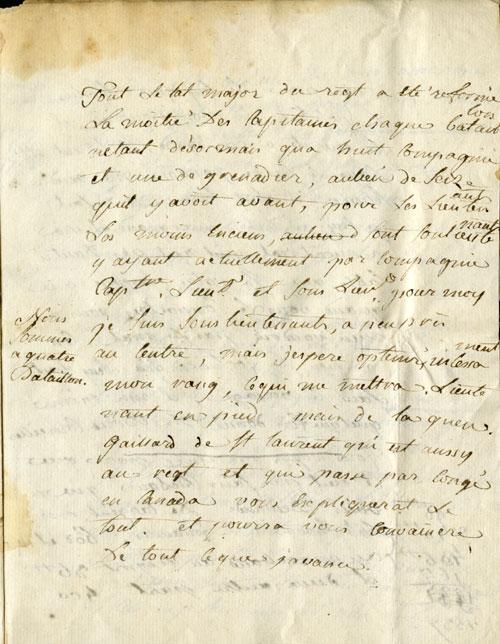 Tout Letat major du regt a été reformé
La moitié Des Capitaines chaque batail
lons
netant désormais qua huit Compagnie
et une de grenadier, aulieu de Seize
quil y avoit avant, pour les Lieuten
ant
Les moins Enciens, aulieu d ont Sont
y ayant actuellement par Compagnie
Captne. Lieut. et Sous Lieut. pour moy
je Suis Sous lieutenants, a peu près
au Centre, mais jespere optenir
ment
mon rang, Cequi me mettra. Lieute
nant en pied mais de la quen.
gaillard de St Laurent qui est aussy
au regt et qui passe par Congé
en Canada vous Expliquerat Le
tout. et pourra vous Convaincre
De tout Ceque javance.
Nous
Sommes
a quatre
Bataillon.